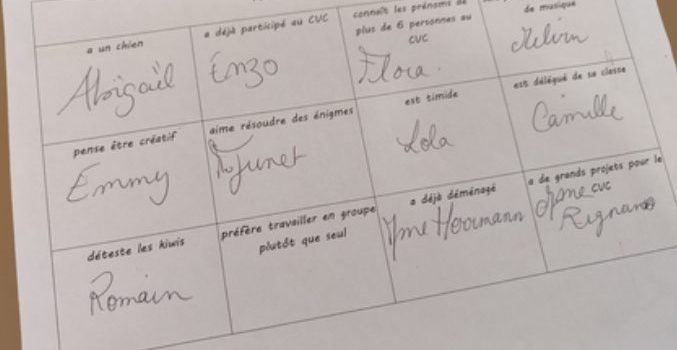 a un chien
Abigaël
a déjà participé au CVC
Enzo
connaît les prénoms de
plus de 6 personnes au
CVC
Flora
de musique
Melvin
pense être créatif
Emmy
aime résoudre des énigmes
est timide
Lola
est délégué de sa classe
Camille
déteste les kiwis
Romain
préfère travailler en groupe
plutôt que seul
a déjà déménagé
Mme
a de grands projets pour le
CVC
Mme